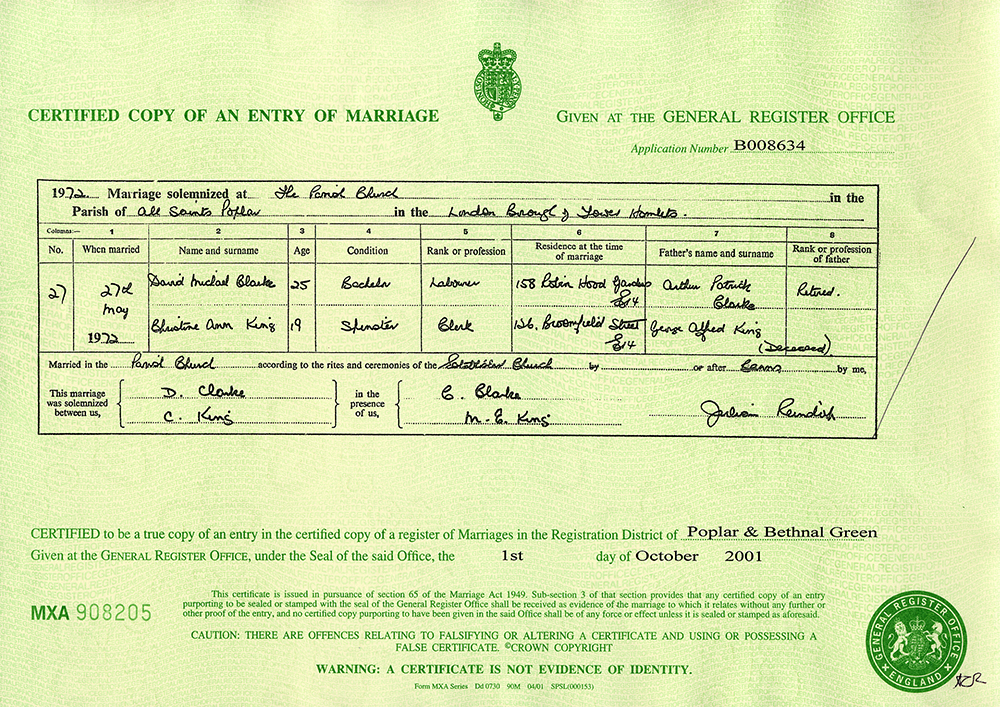 CERTIFIED COPY OF AN ENTRY OF MARRIAGE
GIVEN AT THE GENERAL REGISTER OFFICE
Application Number B008634
1972. Marriage solemnized at The Parish Church in the
Parish of All Saints Poplar in the London Borough of Tower Hamlets.
Columns:— 1 2 3 4 5 6 7 8
No. When married Name and surname Age Condition Rank or profession Residence at the time of marriage Father's name and surname Rank or profession of father
27 27th May 1972 David Michael Clarke 25 Bachelor Labourer 158 Robin Hood Gardens E14 Arthur Patrick Clarke Retired.
Christine Ann King 19 Spinster Clerk 126, Broomfield Street E14 George Alfred King (Deceased)
Married in the Parish Church according to the rites and ceremonies of the Established Church by or after Banns by me,
This marriage was solemnized between us,
D. Clarke
C. King
in the presence of us,
C. Clarke
M. E. King
Julian
CERTIFIED to be a true copy of an entry in the certified copy of a register of Marriages in the Registration District of Poplar & Bethnal Green
Given at the GENERAL REGISTER OFFICE, under the Seal of the said Office, the 1st day of October 2001
MXA 908205
This certificate is issued in pursuance of section 65 of the Marriage Act 1949. Sub-section 3 of that section provides that any certified copy of an entry
purporting to be sealed or stamped with the seal of the General Register Office shall be received as evidence of the marriage to which it relates without any further or
other proof of the entry, and no certified copy purporting to have been given in the said Office shall be of any force or effect unless it is sealed or stamped as aforesaid.
CAUTION: THERE ARE OFFENCES RELATING TO FALSIFYING OR ALTERING A CERTIFICATE AND USING OR POSSESSING A
FALSE CERTIFICATE. ©CROWN COPYRIGHT
WARNING: A CERTIFICATE IS NOT EVIDENCE OF IDENTITY.
Form MXA Series Dd 0730 90M 04/01 SPSL(000153)
GENERAL REGISTER OFFICE
ENGLAND